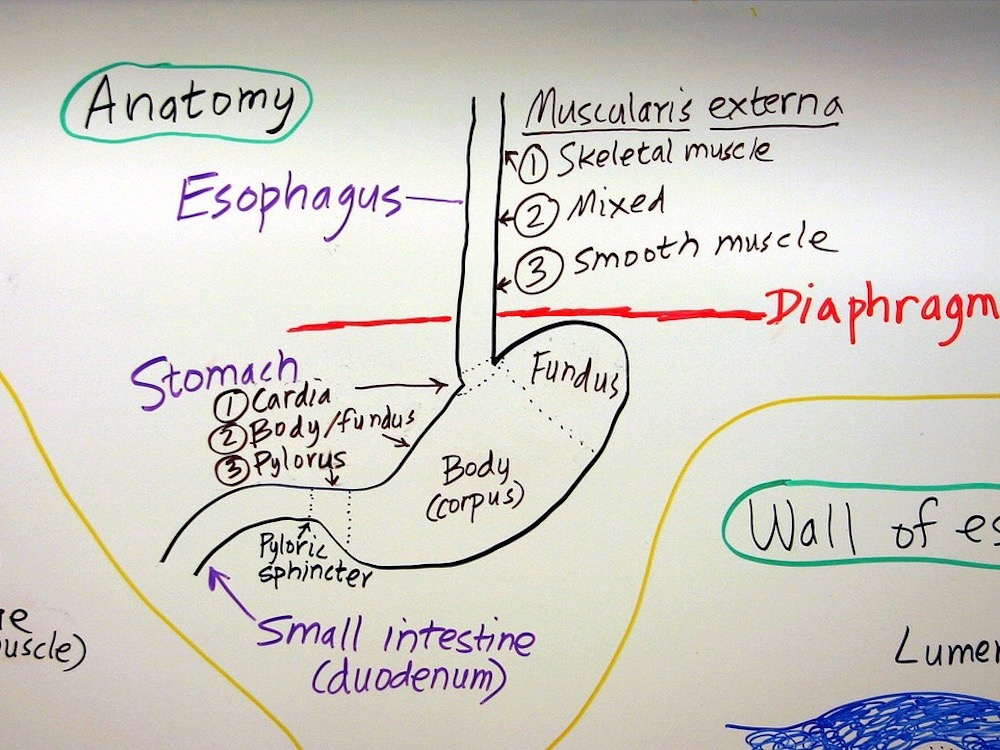 Anatomy
Muscularis externa
① Skeletal muscle
② Mixed
③ Smooth muscle
Esophagus
Diaphragm
Stomach
① Cardia
② Body/fundus
③ Pylorus
Fundus
Body
(corpus)
Pyloric
sphincter
Small intestine
(duodenum)
Wall of es
Lumen
uscle)